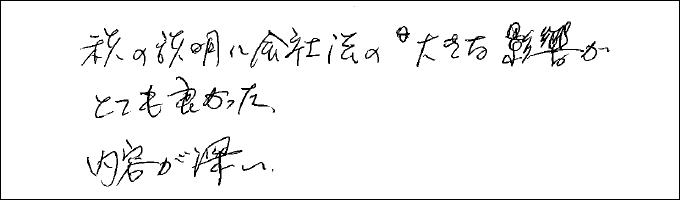 税の説明に会社法の大きな影響が
とても良かった、
内容が深い、